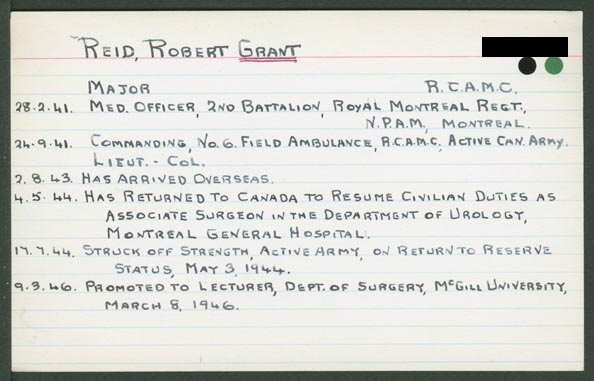 REID, ROBERT GRANT
MAJOR R.C.A.M.C.
28.2.41. MED. OFFICER, 2ND BATTALION, ROYAL MONTREAL REGT.,
N.P.A.M., MONTREAL.
24.9.41. COMMANDING, NO. 6. FIELD AMBULANCE, R.C.A.M.C, ACTIVE CAN. ARMY.
LIEUT. - COL.
2.8.43. HAS ARRIVED OVERSEAS.
4.5.44. HAS RETURNED TO CANADA TO RESUME CIVILIAN DUTIES AS
ASSOCIATE SURGEON IN THE DEPARTMENT OF UROLOGY,
MONTREAL GENERAL HOSPITAL.
17.7.44. STRUCK OFF STRENGTH, ACTIVE ARMY, ON RETURN TO RESERVE
STATUS, MAY 3, 1944.
9.3.46. PROMOTED TO LECTURER, DEPT. OF SURGERY, McGILL UNIVERSITY,
MARCH 8, 1946.